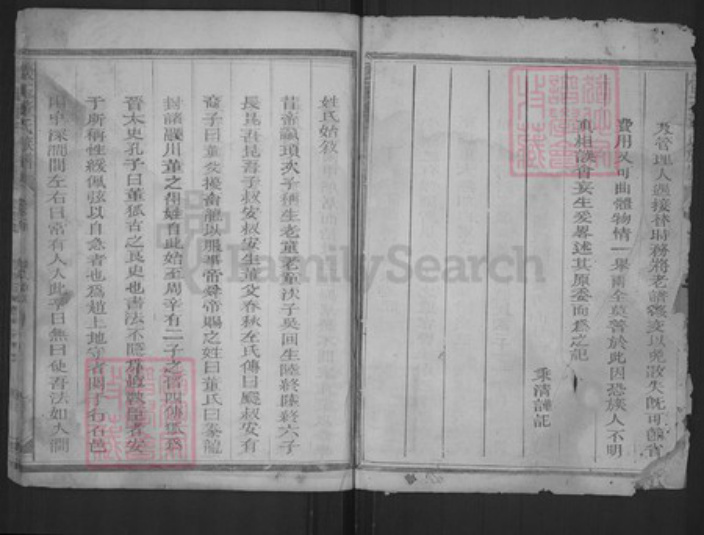 及管理人遇接替時務將老譜繳交以免散失既可節省
費用又可曲體物情一舉兩全莫善於此因恐族人不明
真相誤會妄生爰畧述其原委而為之記
秉清謹記
姓氏始敘
昔帝顓頊次子稱生老童老童次子吳回生陸終陸終六子
長昆吾昆吾子叔安叔安生董父春秋左氏傳曰飂叔安有
裔子曰董父擾畜龍以服事帝舜帝賜之姓曰董氏曰豢龍
封諸鬷川董之得姓自此始至周辛有二子之晉四傳狐為
晉太史孔子曰董狐古之良史也書法不隱
于所稱性緩佩弦以自急者也為趙上地守
澗中深澗問左右曰嘗有人入此乎曰無曰使吾法如入澗
FamilySearch